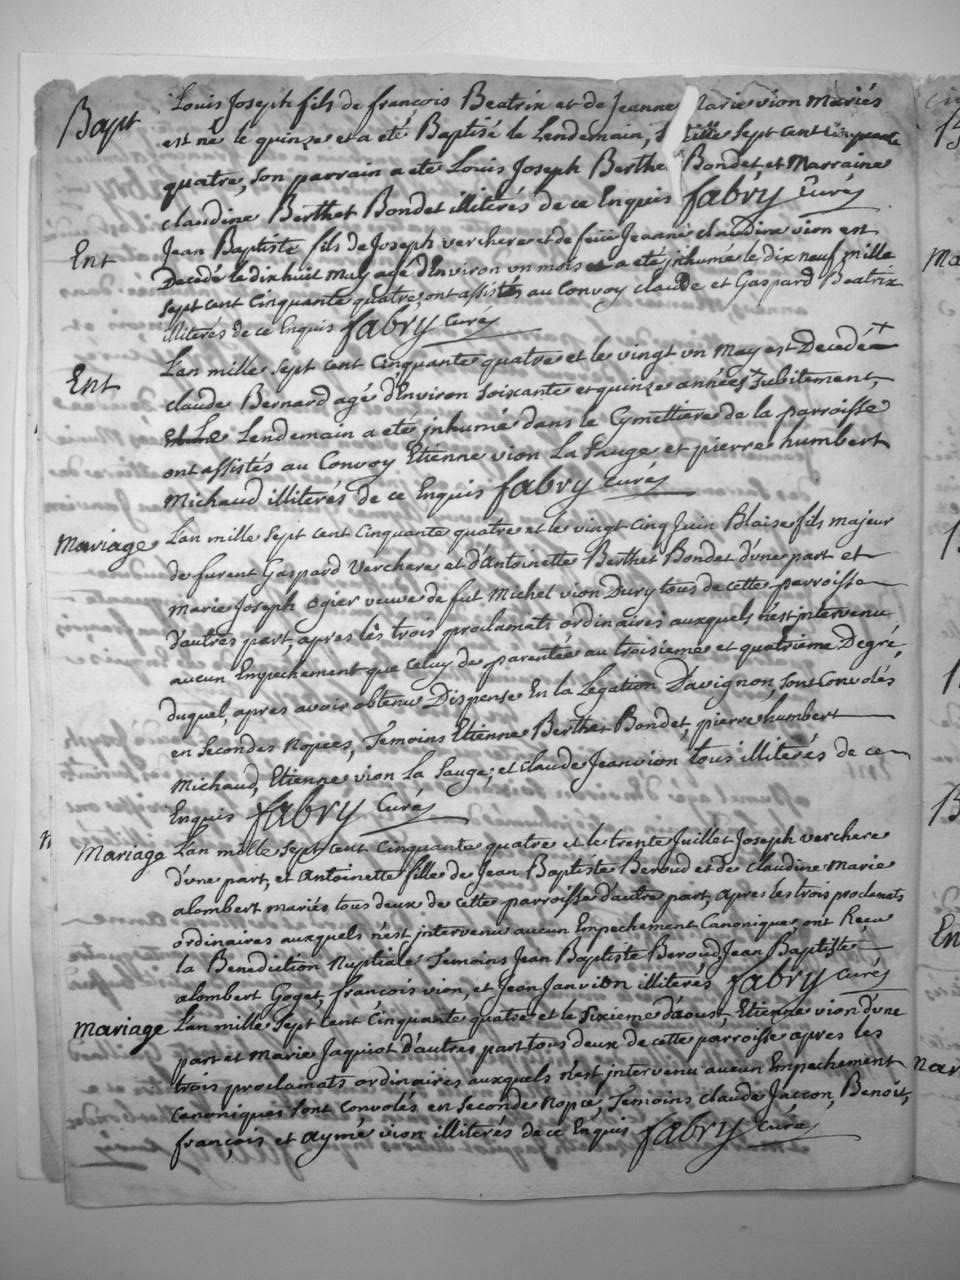 Bapt
Louis Joseph fils de francois Beatrix et de Jeanne Marie vion Mariés
est né le quinze et a eté Baptisé le Lendemain, sept cent cinquante
quatre, son parrain a eté Louis Joseph Berthet Bondet et Marraine
claudine Berthet Bondet illiterés de ce Enquis fabry Curé
Ent
Jean Baptiste fils de Joseph verchere et de feüe Jeanne claudine vion est
Decedé le dix huit May agé d'Environ un mois et a eté jnhumé le dix neuf mille
sept cent Cinquante quatre, ont assistés au Convoy claude et Gaspard Beatrix
illiterés de ce Enquis fabry Curé
Ent
L'an mille sept cent Cinquante quatre et le vingt un May est Decedé
claude Bernard agé d'Environ soixante et quinze années subitement,
et Le Lendemain a eté jnhumé dans le Cymettiere de la parroisse
ont assistés au Convoy Etienne vion La Sauge et pierre humbert
Michaud illiterés de ce Enquis fabry Curé
Mariage
L'an mille sept cent Cinquante quatre et le vingt cinq Juin Blaise fils majeur
de furent Gaspard Verchere et d'Antoinette Berthet Bondet d'une part et
Marie Joseph ogier veuve de fut Michel vion Dury tous de cette parroisse
d'autres part, apres les trois proclamats ordinaires auxquels n'est jntervenu
aucun Empechement que celuy de parentée au troisieme et quatrieme Degré,
duquel, apres avoir obtenu Dispense En la Legation D'avignon, sont Convolés
en secondes Nopces, Temoins Etienne Berthet Bondet, pierre humbert
Michaud, Etienne vion La Sauge, et claude Jeanvion tous illiterés de ce
Enquis fabry Curé
Mariage
L'an mille sept cent Cinquante quatre et le trente Juillet Joseph verchere
d'une part, et antoinette fille de Jean Baptiste Beroud et de claudine Marie
alombert mariés tous deux de cette parroisse d'autre part, apres les trois proclamats
ordinaires auxquels n'est jntervenu aucun Empechement Canonique, ont Reçu
la Benediction Nuptiale Temoins Jean Baptiste Beroud, Jean Baptiste
alombert Goget, francois vion, et Jean Janvion illiterés fabry Curé
Mariage
L'an mille sept cent Cinquante quatre et le sixieme d'aoust, Etienne vion d'une
part et Marie Jaquiot d'autres part tous deux de cette parroisse apres les
trois proclamats ordinaires auxquels n'est jntervenu aucun Empechement
canoniques sont Convolés en seconde Nopce, Temoins claude Jaccon, Benoit,
françois et aymé vion illiterés de ce Enquis fabry Curé